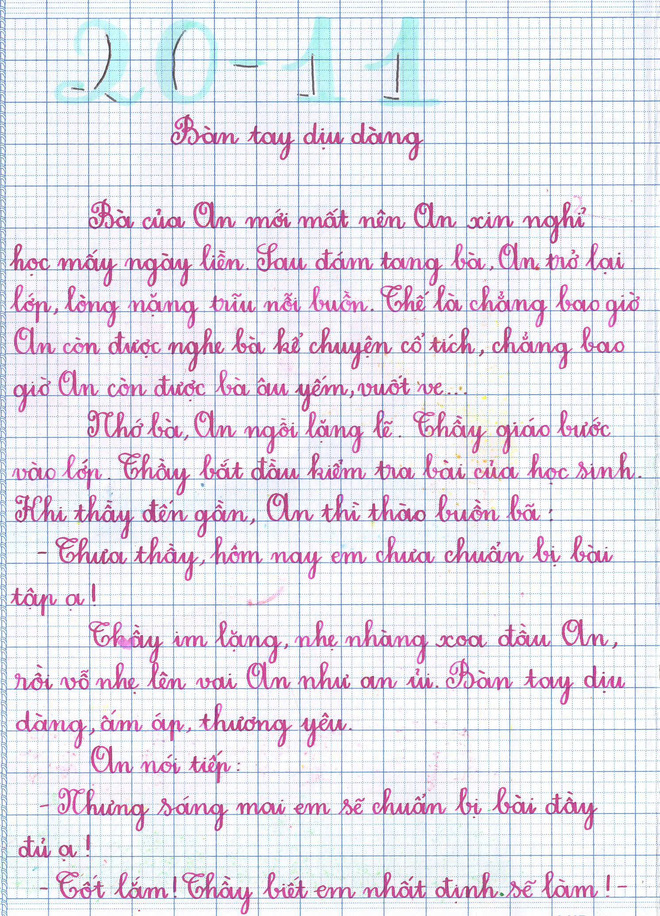 20-11
Bàn tay dịu dàng
Bà của An mới mất nên An xin nghỉ
học mấy ngày liền. Sau đám tang bà, An trở lại
lớp, lòng nặng trĩu nỗi buồn. Thế là chẳng bao giờ
An còn được nghe bà kể chuyện cổ tích, chẳng bao
giờ An còn được bà âu yếm, vuốt ve...
Nhớ bà, An ngồi lặng lẽ. Thầy giáo bước
vào lớp. Thầy bắt đầu kiểm tra bài của học sinh.
Khi thầy đến gần, An thì thào buồn bã:
- Thưa thầy, hôm nay em chưa chuẩn bị bài
tập ạ!
Thầy im lặng, nhẹ nhàng xoa đầu An,
rồi vỗ nhẹ lên vai An như an ủi. Bàn tay dịu
dàng, ấm áp, thương yêu.
An nói tiếp:
- Nhưng sáng mai em sẽ chuẩn bị bài đầy
đủ ạ!
- Tốt lắm! Thầy biết em nhất định sẽ làm! -